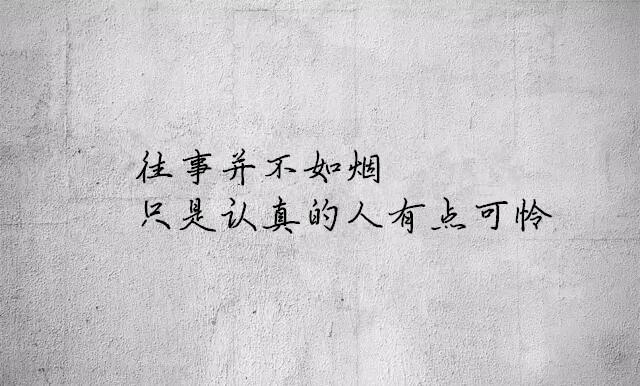 往事并不如烟
只是认真的人有点可怜